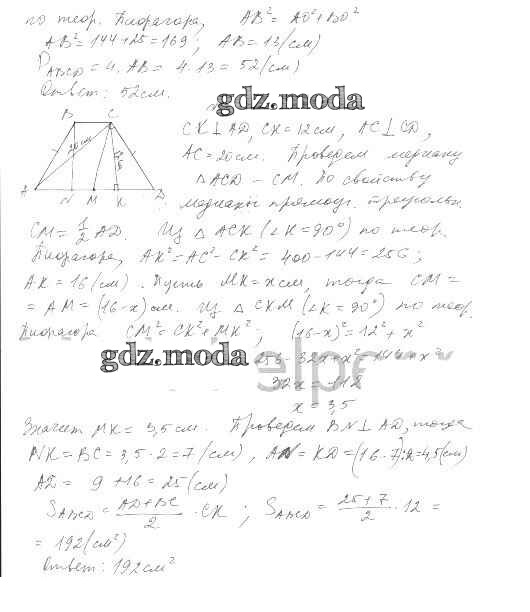 по теор. Пифагора, AB² = AO² + BO²
AB² = 144 + 25 = 169; AB = 13 (см)
P_ABCD = 4 · AB = 4 · 13 = 52 (см)
Ответ: 52 см.
gdz.moda
B C
20 см
12
A N M K D
CK ⊥ AD, CK = 12 см, AC ⊥ CD,
AC = 20 см. Проведем медиану
△ ACD – CM. По свойству
медианы прямоуг. треугольн.
CM = 1/2 AD. Из △ ACK (∠K = 90°) по теор.
Пифагора, AK² = AC² – CK² = 400 – 144 = 256;
AK = 16 (см). Пусть MK = x см, тогда CM =
= AM = (16 – x) см. Из △ CKM (∠K = 90°) по теор.
Пифагора CM² = CK² + MK²; (16 – x)² = 12² + x²
gdz.moda
256 – 32x + x² = 144 + x²
32x = 112
x = 3,5
Значит MK = 3,5 см. Проведем BN ⊥ AD, тогда
NK = BC = 3,5 · 2 = 7 (см), AN = KD = (16 – 7) : 2 = 4,5 (см)
AD = 9 + 16 = 25 (см)
S_ABCD = (AD + BC)/2 · CK; S_ABCD = (25 + 7)/2 · 12 =
= 192 (см²)
Ответ: 192 см²